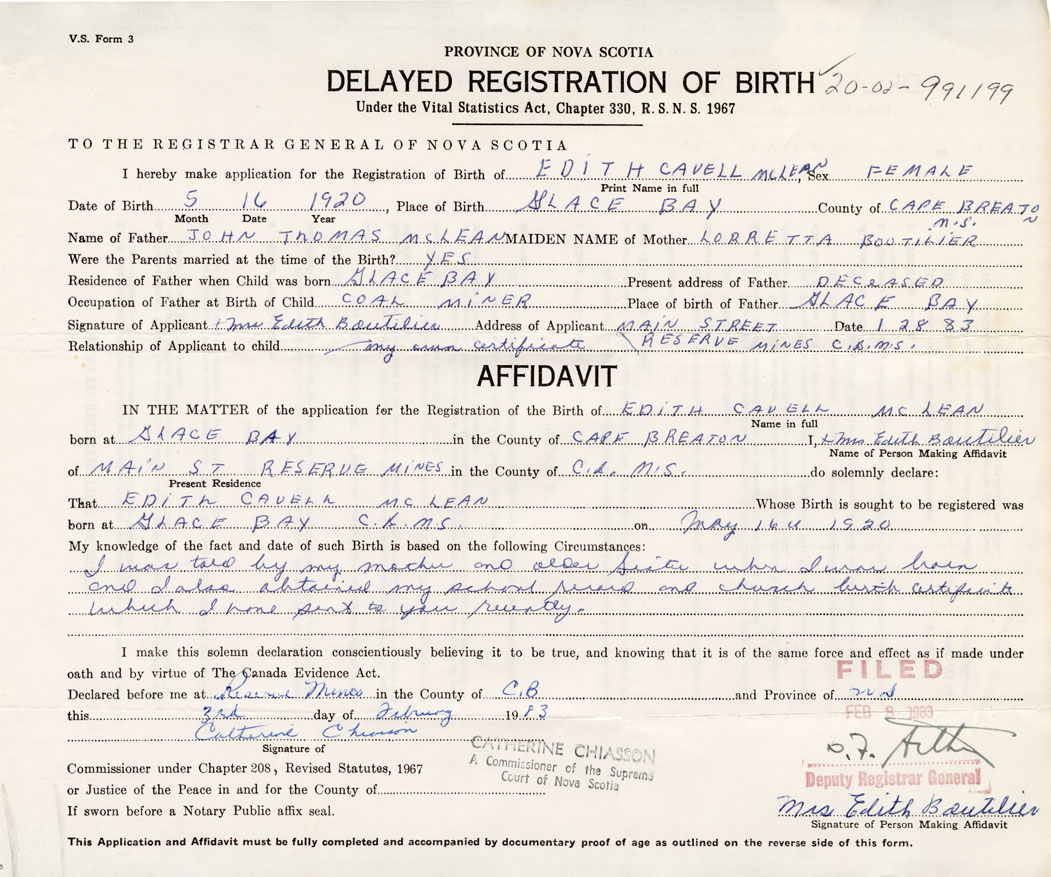 V.S. Form 3
PROVINCE OF NOVA SCOTIA
DELAYED REGISTRATION OF BIRTH 20-02-991199
Under the Vital Statistics Act, Chapter 330, R.S.N.S. 1967
TO THE REGISTRAR GENERAL OF NOVA SCOTIA
I hereby make application for the Registration of Birth of EDITH CAVELL McLEAN, Sex FEMALE
Print Name in full
Date of Birth 5 16 1920, Place of Birth GLACE BAY County of CAPE BREATON
Month Date Year N.S.
Name of Father JOHN THOMAS McLEAN MAIDEN NAME of Mother LORRETTA BOUTILIER
Were the Parents married at the time of the Birth? YES
Residence of Father when Child was born GLACE BAY Present address of Father DECEASED
Occupation of Father at Birth of Child COAL MINER Place of birth of Father GLACE BAY
Signature of Applicant Mrs Edith Boutilier Address of Applicant MAIN STREET Date 1 28 83
Relationship of Applicant to child my own certificate RESERVE MINES C.B.N.S.
AFFIDAVIT
IN THE MATTER of the application for the Registration of the Birth of EDITH CAVELL McLEAN
Name in full
born at GLACE BAY in the County of CAPE BREATON I, Mrs Edith Boutilier
Name of Person Making Affidavit
of MAIN ST RESERVE MINES in the County of C.B. N.S. do solemnly declare:
Present Residence
That EDITH CAVELL McLEAN Whose Birth is sought to be registered was
born at GLACE BAY C.B.N.S. on May 16th 1920
My knowledge of the fact and date of such Birth is based on the following Circumstances:
I was told by my mother and older Sister when I was born
and I also obtained my school record and church birth certificate
which I have sent to you recently.
I make this solemn declaration conscientiously believing it to be true, and knowing that it is of the same force and effect as if made under
oath and by virtue of The Canada Evidence Act.
FILED
Declared before me at Reserve Mines in the County of C.B and Province of N S
this 3rd day of February 1983
FEB 9 1983
Catherine Chiasson
Signature of
CATHERINE CHIASSON
A Commissioner of the Supreme
Court of Nova Scotia
Commissioner under Chapter 208, Revised Statutes, 1967
Deputy Registrar General
or Justice of the Peace in and for the County of
Mrs Edith Boutilier
If sworn before a Notary Public affix seal.
Signature of Person Making Affidavit
This Application and Affidavit must be fully completed and accompanied by documentary proof of age as outlined on the reverse side of this form.